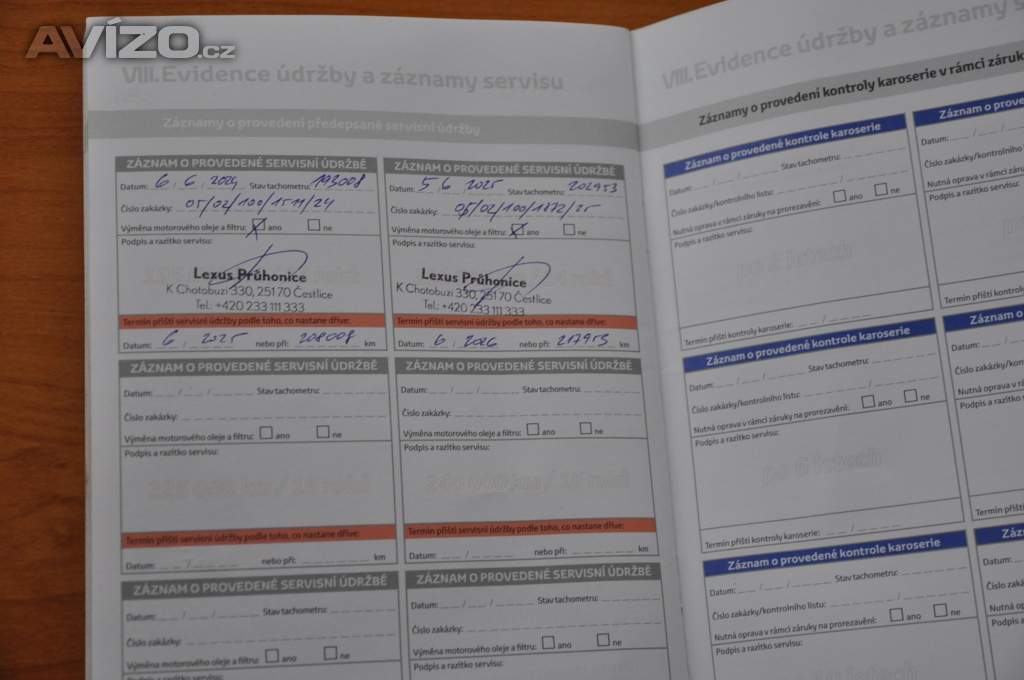 AVÍZO.cz
VIII. Evidence údržby a záznamy servisu
Záznamy o provedení předepsané servisní údržby
ZÁZNAM O PROVEDENÉ SERVISNÍ ÚDRŽBĚ
Datum: 6. 6. 2024 Stav tachometru: 193008
Číslo zakázky: 05/02/100/1511/24
Výměna motorového oleje a filtru: ano ne
Podpis a razítko servisu:
Lexus Průhonice
K Chotobuzi 330, 251 70 Čestlice
Tel.: +420 233 111 333
Termín příští servisní údržby podle toho, co nastane dříve:
Datum: 6. 2025 nebo při: 208008 km
ZÁZNAM O PROVEDENÉ SERVISNÍ ÚDRŽBĚ
Datum: 5 6 2025 Stav tachometru: 202953
Číslo zakázky: 05/02/100/1872/25
Výměna motorového oleje a filtru: ano ne
Podpis a razítko servisu:
Lexus Průhonice
K Chotobuzi 330, 251 70 Čestlice
Tel.: +420 233 111 333
Termín příští servisní údržby podle toho, co nastane dříve:
Datum: 6. 2026 nebo při: 217953 km
ZÁZNAM O PROVEDENÉ SERVISNÍ ÚDRŽBĚ
Datum: / / Stav tachometru:
Číslo zakázky:
Výměna motorového oleje a filtru: ano ne
Podpis a razítko servisu:
225 000 km / 15 roků
Termín příští servisní údržby podle toho, co nastane dříve:
Datum: / nebo při: km
ZÁZNAM O PROVEDENÉ SERVISNÍ ÚDRŽBĚ
Datum: / / Stav tachometru:
Číslo zakázky:
Výměna motorového oleje a filtru: ano ne
Podpis a razítko servisu:
240 000 km / 16 roků
Termín příští servisní údržby podle toho, co nastane dříve:
Datum: / nebo při: km
ZÁZNAM O PROVEDENÉ SERVISNÍ ÚDRŽBĚ
Datum: / / Stav tachometru:
Číslo zakázky:
Výměna motorového oleje a filtru: ano ne
Podpis a razítko servisu:
ZÁZNAM O PROVEDENÉ SERVISNÍ ÚDRŽBĚ
Datum: / / Stav tachometru:
Číslo zakázky:
Výměna motorového oleje a filtru: ano ne
Podpis a razítko servisu:
VIII. Evidence údržby a záznamy s
Záznamy o provedení kontroly karoserie v rámci záruk
Záznam o provedené kontrole karoserie
Datum: / / Stav tachometru:
Číslo zakázky/kontrolního listu:
Nutná oprava v rámci záruky na prorezavění: ano ne
Podpis a razítko servisu:
Termín příští kontroly karoserie: /
Záznam o provedené kontrole karoserie
Datum: / / Stav tachometru:
Číslo zakázky/kontrolního listu:
Nutná oprava v rámci záruky na prorezavění: ano ne
Podpis a razítko servisu:
po 6 letech
Termín příští kontroly karoserie: /
Záznam o provedené kontrole karoserie
Datum: / / Stav tachometru:
Číslo zakázky/kontrolního listu:
Nutná oprava v rámci záruky na prorezavění: ano ne
Podpis a razítko servisu:
Záznam o prove
Datum: / /
Číslo zakázky/kontroln
Nutná oprava v rámci záru
Podpis a razítko servisu:
Termín příští kontrol
Záznam o
Datum:
Číslo zakázky/
Nutná oprava v rá
Podpis a razítko
Termín příští
Zázn
Datum:
Číslo za
Nutná o
Podpis